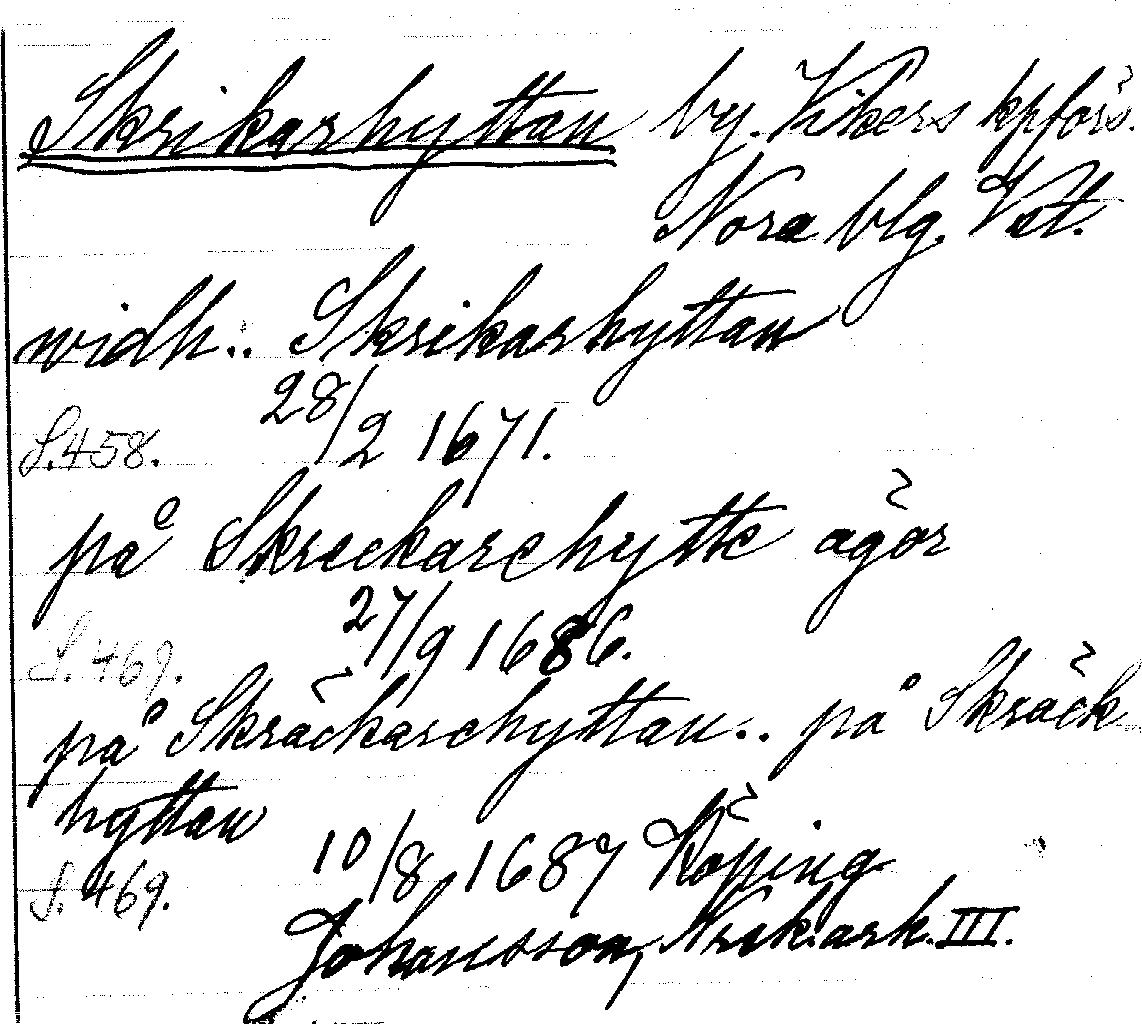 Skrikarhyttan by. Vikers kpförs.
Nora blg. Vstl.
widh.. Skrikarhyttan
28/2 1671.
S. 458.
på Skreckarehytte ägor
27/9 1686.
S. 469.
på Skräckarehyttan.. på Skräck
hyttan
10/8 1687 Köping
S. 469.
Johansson, Nrik. ark. III.